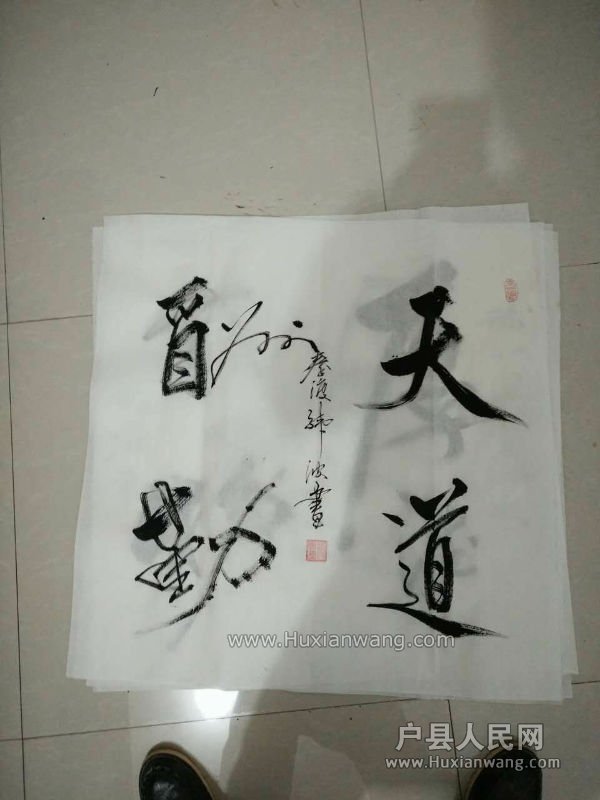 天道
酬勤
秦渡 波書
www.Huxianwang.com
户县人民网
www.Huxianwang.com